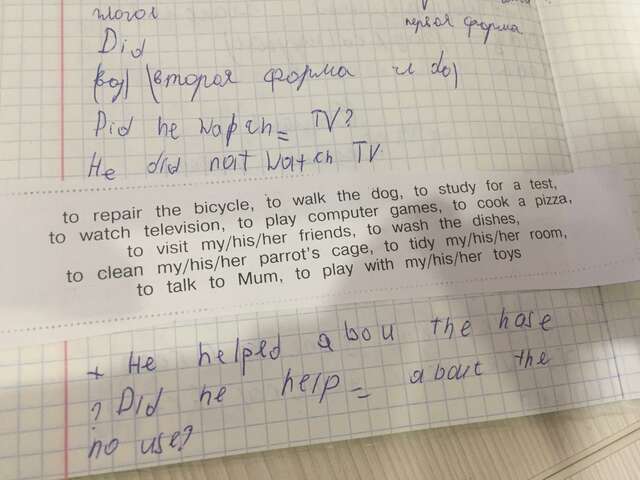 глагол
первая форма
Did
(вторая форма и do)
Did he wapch TV?
He did not watch TV
to repair the bicycle, to walk the dog, to study for a test,
to watch television, to play computer games, to cook a pizza,
to visit my/his/her friends, to wash the dishes,
to clean my/his/her parrot's cage, to tidy my/his/her room,
to talk to Mum, to play with my/his/her toys
+ He helped abou the hose
? Did he help about the
no use?